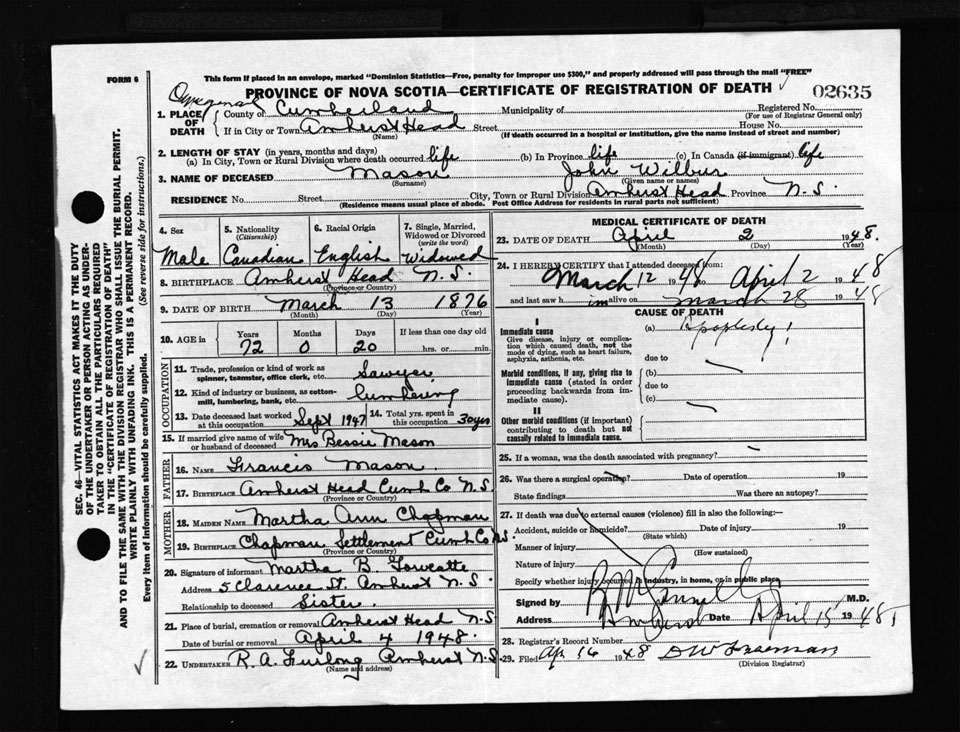 This form if placed in an envelope, marked "Dominion Statistics—Free, penalty for improper use $300," and properly addressed will pass through the mail "FREE"
FORM 6
PROVINCE OF NOVA SCOTIA—CERTIFICATE OF REGISTRATION OF DEATH
02635
1. PLACE OF DEATH
County of Cumberland Municipality of Registered No.
(For use of Registrar General only)
If in City or Town Amherst Head Street House No.
(Name) (If death occurred in a hospital or institution, give the name instead of street and number)
2. LENGTH OF STAY (in years, months and days)
(a) In City, Town or Rural Division where death occurred life (b) In Province life (c) In Canada (if immigrant) life
3. NAME OF DECEASED Mason John Wilbur
(Surname) (Given name or names)
RESIDENCE No. Street City, Town or Rural Division Amherst Head Province N.S.
(Residence means usual place of abode. Post Office Address for residents in rural parts not sufficient)
4. Sex 5. Nationality (Citizenship) 6. Racial Origin 7. Single, Married, Widowed or Divorced (write the word)
Male Canadian English Widowed
8. BIRTHPLACE Amherst Head N.S.
(Province or Country)
9. DATE OF BIRTH March 13 1876
(Month) (Day) (Year)
10. AGE in Years Months Days If less than one day old
72 0 20 hrs. or min.
OCCUPATION
11. Trade, profession or kind of work as spinner, teamster, office clerk, etc. Sawyer
12. Kind of industry or business, as cotton-mill, lumbering, bank, etc. Lumbering
13. Date deceased last worked at this occupation Sept 1947 14. Total yrs. spent in this occupation 30 yrs
15. If married give name of wife or husband of deceased Mrs Bessie Mason
FATHER
16. NAME Francis Mason
17. BIRTHPLACE Amherst Head Cumb Co N.S.
(Province or Country)
MOTHER
18. MAIDEN NAME Martha Ann Chapman
19. BIRTHPLACE Chapman Settlement Cumb Co N.S.
(Province or Country)
20. Signature of informant Martha B.
Address 5 Clarence St. Amherst N.S.
Relationship to deceased Sister.
21. Place of burial, cremation or removal Amherst Head N.S
Date of burial or removal April 4 1948.
22. UNDERTAKER R. A. Furlong Amherst N.S.
(Name and address)
MEDICAL CERTIFICATE OF DEATH
23. DATE OF DEATH April 2 1948.
(Month) (Day) (Year)
24. I HEREBY CERTIFY that I attended deceased from:
March 12 1948 to April 2 1948
and last saw him alive on March 28 1948
CAUSE OF DEATH
I
Immediate cause
Give disease, injury or complication which caused death, not the mode of dying, such as heart failure, asphyxia, asthenia, etc.
(a) Apoplexy
due to
Morbid conditions, if any, giving rise to immediate cause (stated in order proceeding backwards from immediate cause).
(b)
due to
(c)
II
Other morbid conditions (if important) contributing to death but not causally related to immediate cause.
25. If a woman, was the death associated with pregnancy?
26. Was there a surgical operation? Date of operation 19
State findings Was there an autopsy?
27. If death was due to external causes (violence) fill in also the following:—
Accident, suicide or homicide? Date of injury 19
(State which)
Manner of injury
(How sustained)
Nature of injury
Specify whether injury occurred in industry, in home, or in public place
Signed by M.D.
Address Amherst Date April 15 1948
28. Registrar's Record Number
29. Filed Ap 16 1948
(Division Registrar)
SEC. 46—VITAL STATISTICS ACT MAKES IT THE DUTY
OF THE UNDERTAKER OR PERSON ACTING AS UNDER-
TAKER TO OBTAIN ALL THE PARTICULARS REQUIRED
IN THE "CERTIFICATE OF REGISTRATION OF DEATH"
AND TO FILE THE SAME WITH THE DIVISION REGISTRAR WHO SHALL ISSUE THE BURIAL PERMIT.
WRITE PLAINLY WITH UNFADING INK. THIS IS A PERMANENT RECORD.
Every item of information should be carefully supplied. (See reverse side for instructions.)